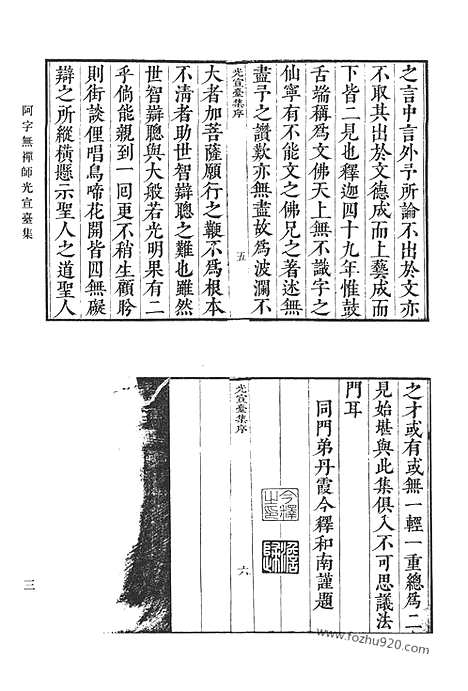 之言中言外予所論不出於文亦
不取其出於文德成而上藝成而
下皆二見也釋迦四十九年惟鼓
舌端稱爲文佛天上無不識字之
仙寧有不能文之佛兄之著述無
盡予之讚歎亦無盡故爲波瀾不
光宣臺集序
五
大者加菩薩願行之鞭不爲根本
不清者助世智辯聰之難也雖然
世智辯聰與大般若光明果有二
乎倘能覿到一回更不稍生顧肹
則街談俚唱鳥啼花開皆四無礙
辯之所縱橫懸示聖人之道聖人
阿字無禪師光宣臺集
之才或有或無一輕一重總爲二
見始堪與此集俱入不可思議法
門耳
同門弟丹霞今釋和南謹題
今釋之印
光宣臺集序
六
三
www.fozhu920.com